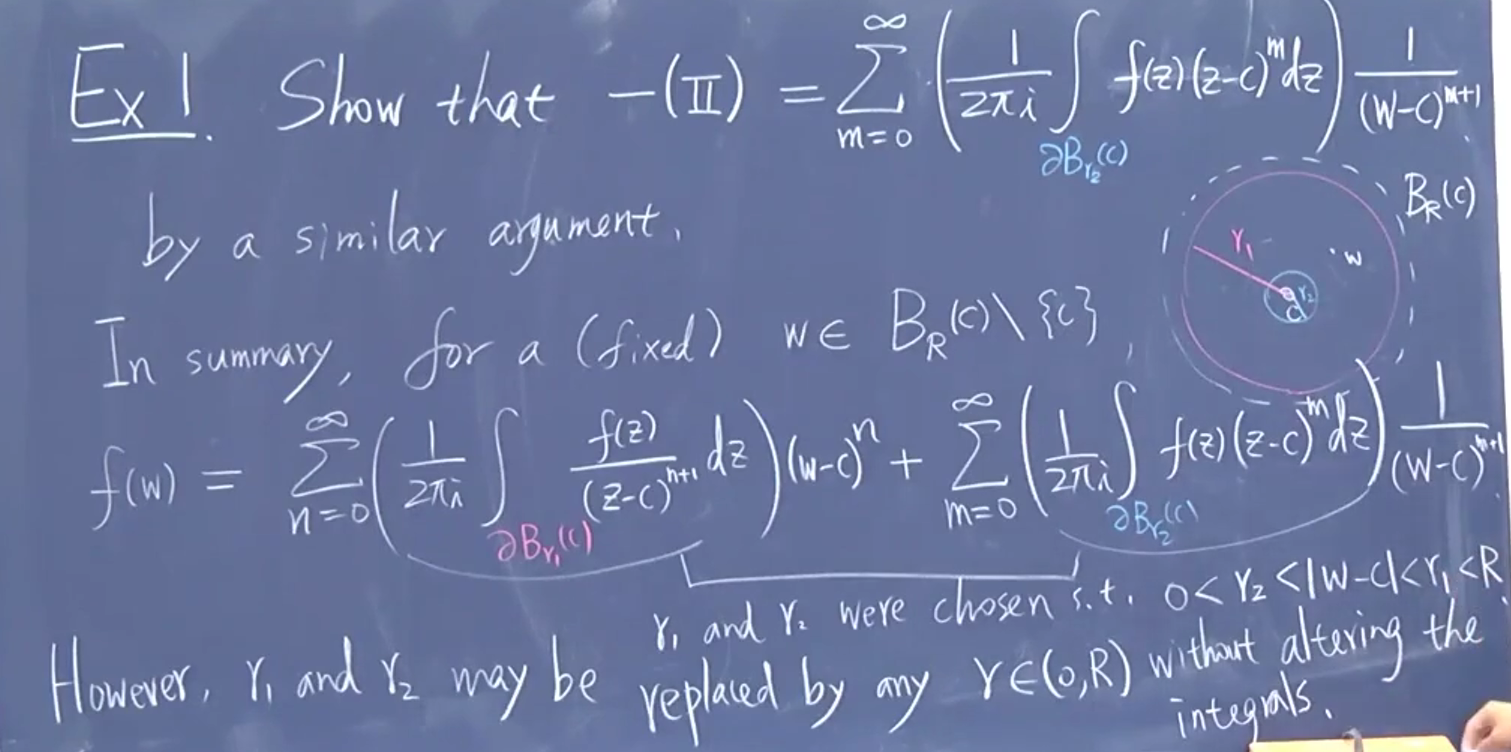 Ex 1. Show that −(II) = ∑_{m=0}^{∞} ( 1/(2πi) ∫_{∂B_{r₂}(c)} f(z)(z-c)^m dz ) 1/(w-c)^{m+1}
by a similar argument.
B_R(c)
r₁
w
r₂
c
In summary, for a (fixed) w ∈ B_R(c)\{c},
f(w) = ∑_{n=0}^{∞} ( 1/(2πi) ∫_{∂B_{r₁}(c)} f(z)/(z-c)^{n+1} dz ) (w-c)^n + ∑_{m=0}^{∞} ( 1/(2πi) ∫_{∂B_{r₂}(c)} f(z)(z-c)^m dz ) 1/(w-c)^{m+1}
r₁ and r₂ were chosen s.t. 0<r₂<|w-c|<r₁<R
However, r₁ and r₂ may be replaced by any r∈(0,R) without altering the
integrals.